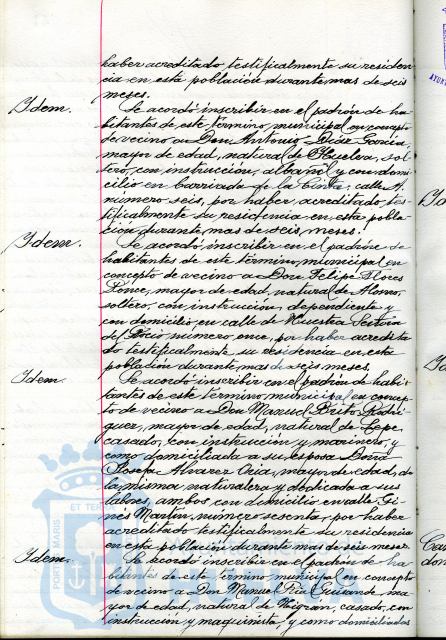 haber acreditado testificalmente su residen
cia en esta población durante mas de seis
meses.
Idem. Se acordó inscribir en el padrón de ha
bitantes de este término municipal en concepto
de vecino a Don Antonio Dias Garcia,
mayor de edad, natural de Huelva, sol-
tero, con instrucción, albañil y con domi
cilio en barriada de la Cinta, calle A,
número seis, por haber acreditado tes-
tificalmente su residencia en esta pobla-
ción durante mas de seis meses.
Idem. Se acordó inscribir en el padrón de
habitantes de este término municipal en
concepto de vecino a Don Felipe Flores
Ponce, mayor de edad, natural de Alosno,
soltero, con instrucción, dependiente y
con domicilio en calle de Nuestra Señora
del Rocio, número once, por haber acredita
do testificalmente su residencia en esta
población durante mas de seis meses.
Idem. Se acordó inscribir en el padrón de habi-
tantes de este término municipal en concep
to de vecino a Don Manuel Brito Rodri
guez, mayor de edad, natural de Lepe,
casado, con instrucción y marinero, y
como domiciliada a su esposa Doña
Josefa Alvarez Oria, mayor de edad, de
la misma naturaleza y dedicada a sus
labores, ambos con domicilio en calle Gi-
nés Martin, número sesenta, por haber
acreditado testificalmente su residencia
en esta población durante mas de seis meses.
Idem. Se acordó inscribir en el padrón de ha
bitantes de este término municipal en concepto
de vecino a Don Manuel ma
yor de edad, natural de Nigrán, casado, con
instrucción y maquinista, y como domiciliados
PORTUS MARIS ET TERRÆ